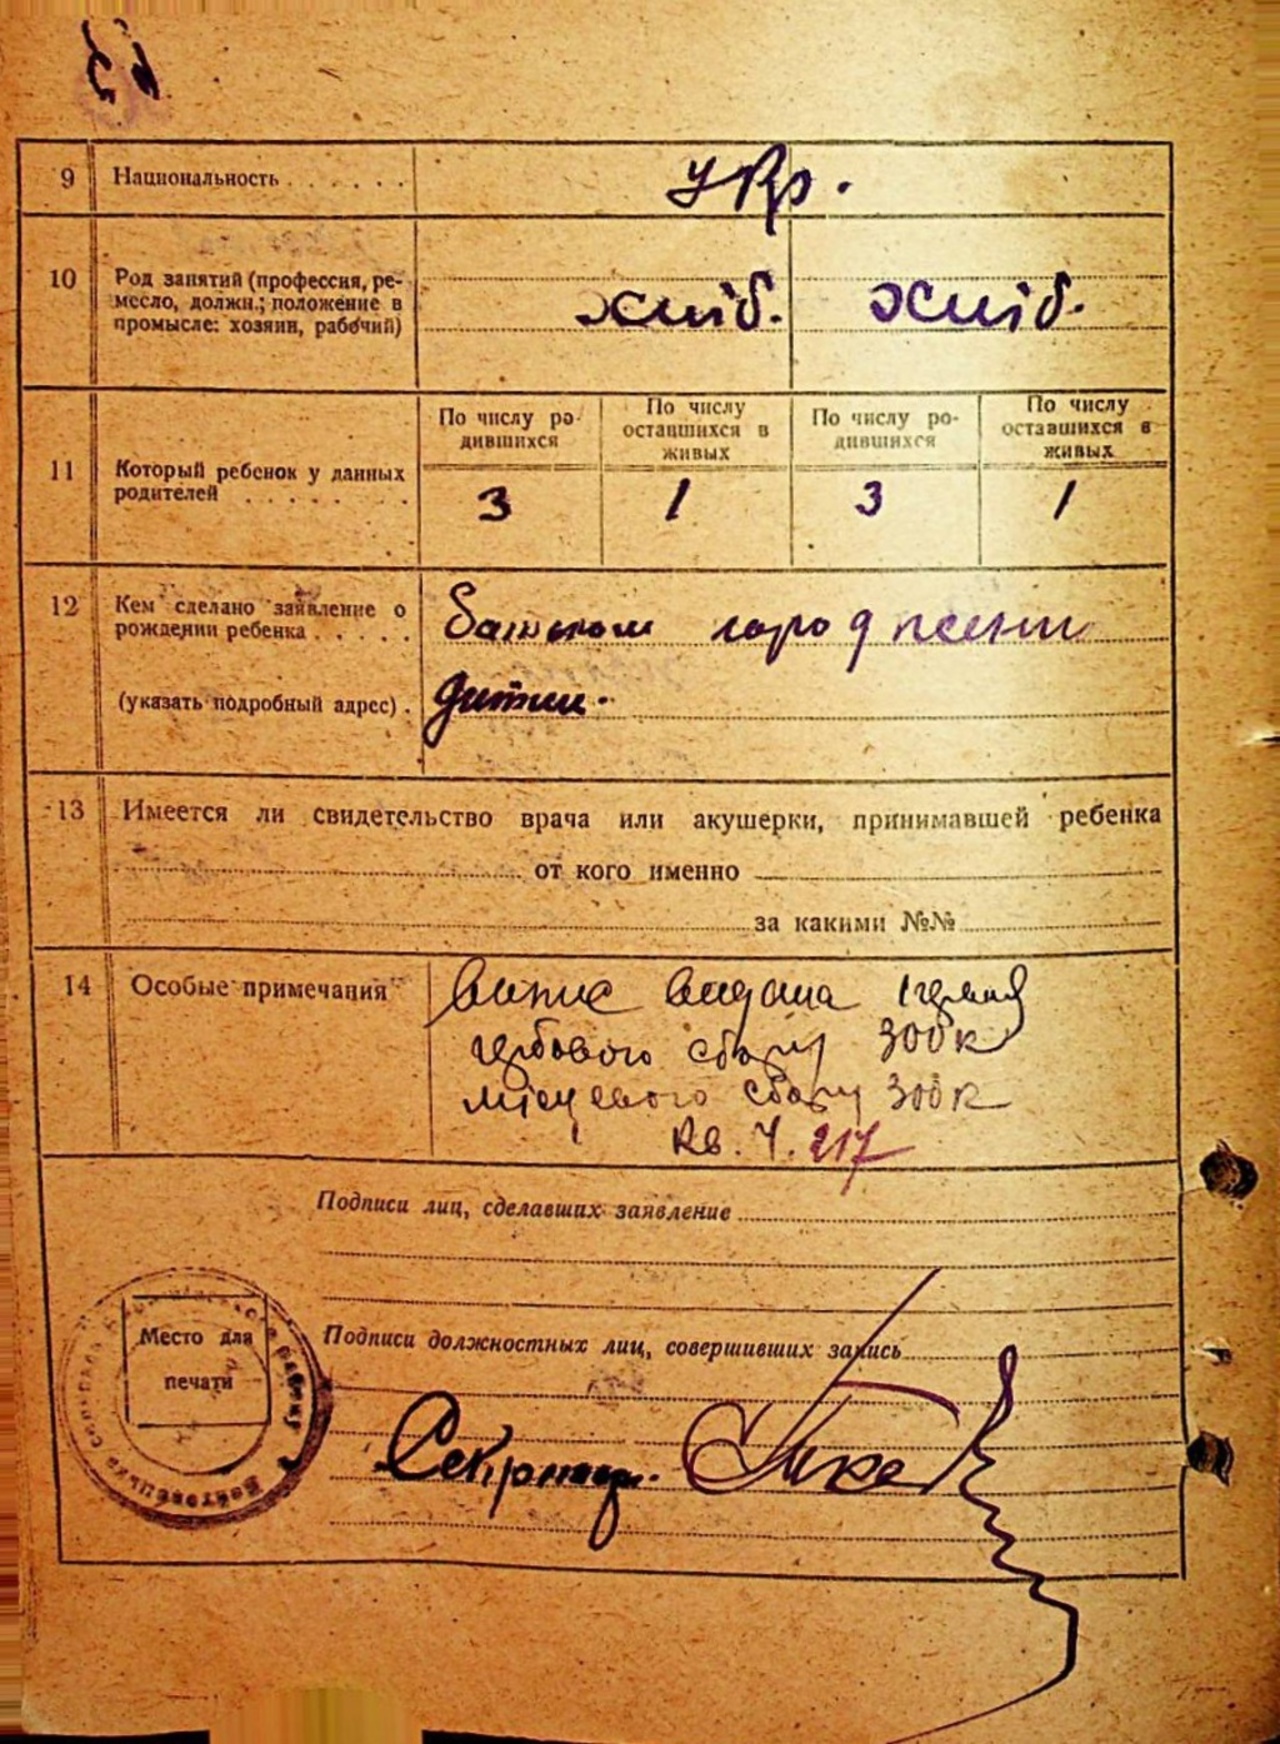 9 Национальность . . . . . . .
укр.
10 Род занятий (профессия, ре-
месло, должн.; положение в
промысле: хозяин, рабочий)
хліб. хліб.
11 Который ребенок у данных
родителей . . . . . . . .
По числу ро-
дившихся
По числу
оставшихся в
живых
По числу ро-
дившихся
По числу
оставшихся в
живых
3 1 3 1
12 Кем сделано заявление о
рождении ребенка . . . . .
(указать подробный адрес) .
Батьком про
дитини.
13 Имеется ли свидетельство врача или акушерки, принимавшей ребенка
от кого именно
за какими №№
14 Особые примечания
Випис видана
гербового сбору 300 к
місцевого сбору 300 к
Кв. Ч. 217
Подписи лиц, сделавших заявление
Место для
печати
Подписи должностных лиц, совершивших запись
Секретар.